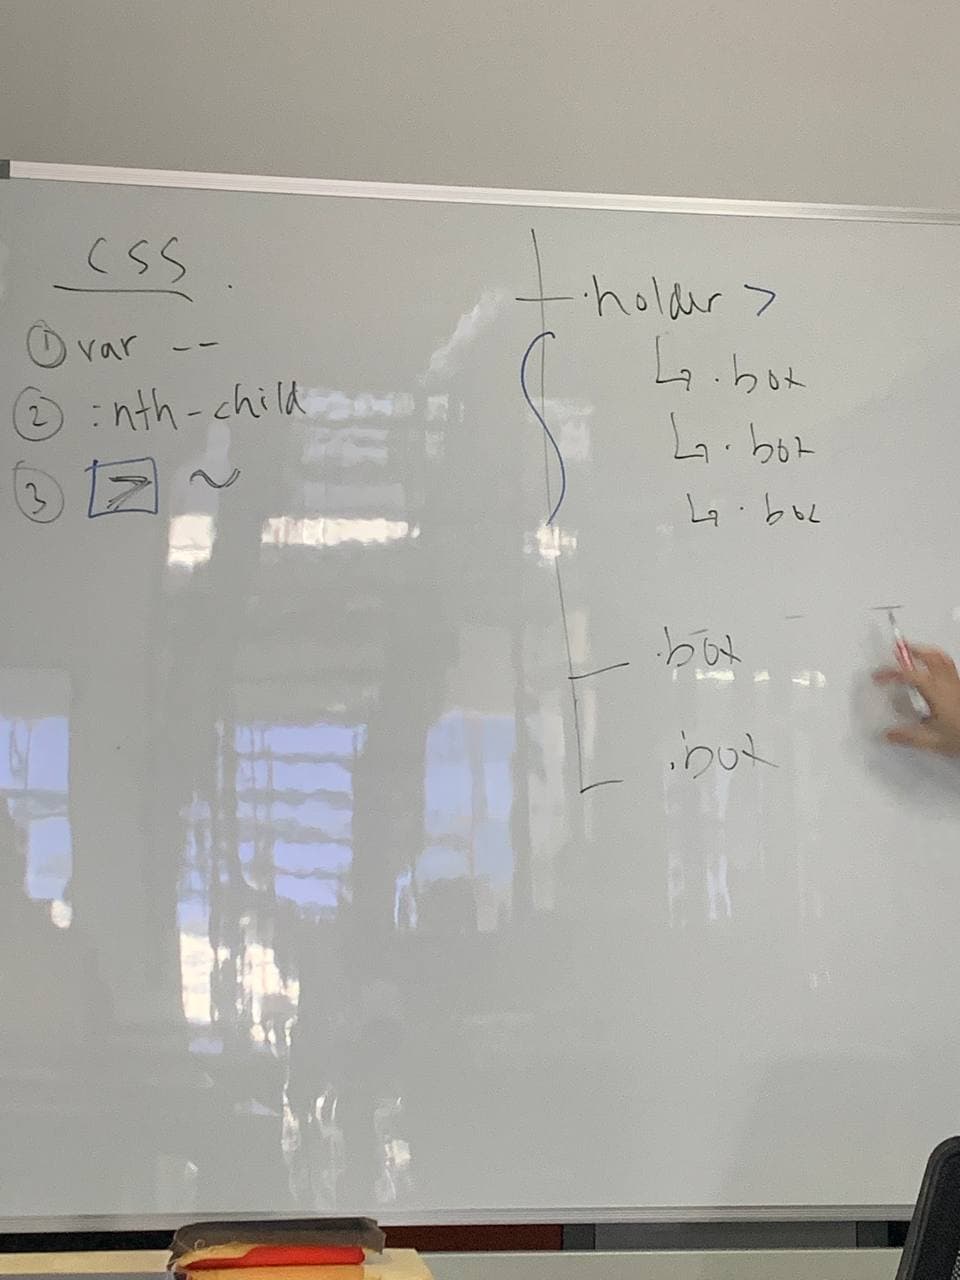 CSS
① var --
② :nth-child
③ > ~
.holder >
↳ .box
↳ .box
↳ .box
.box
.box